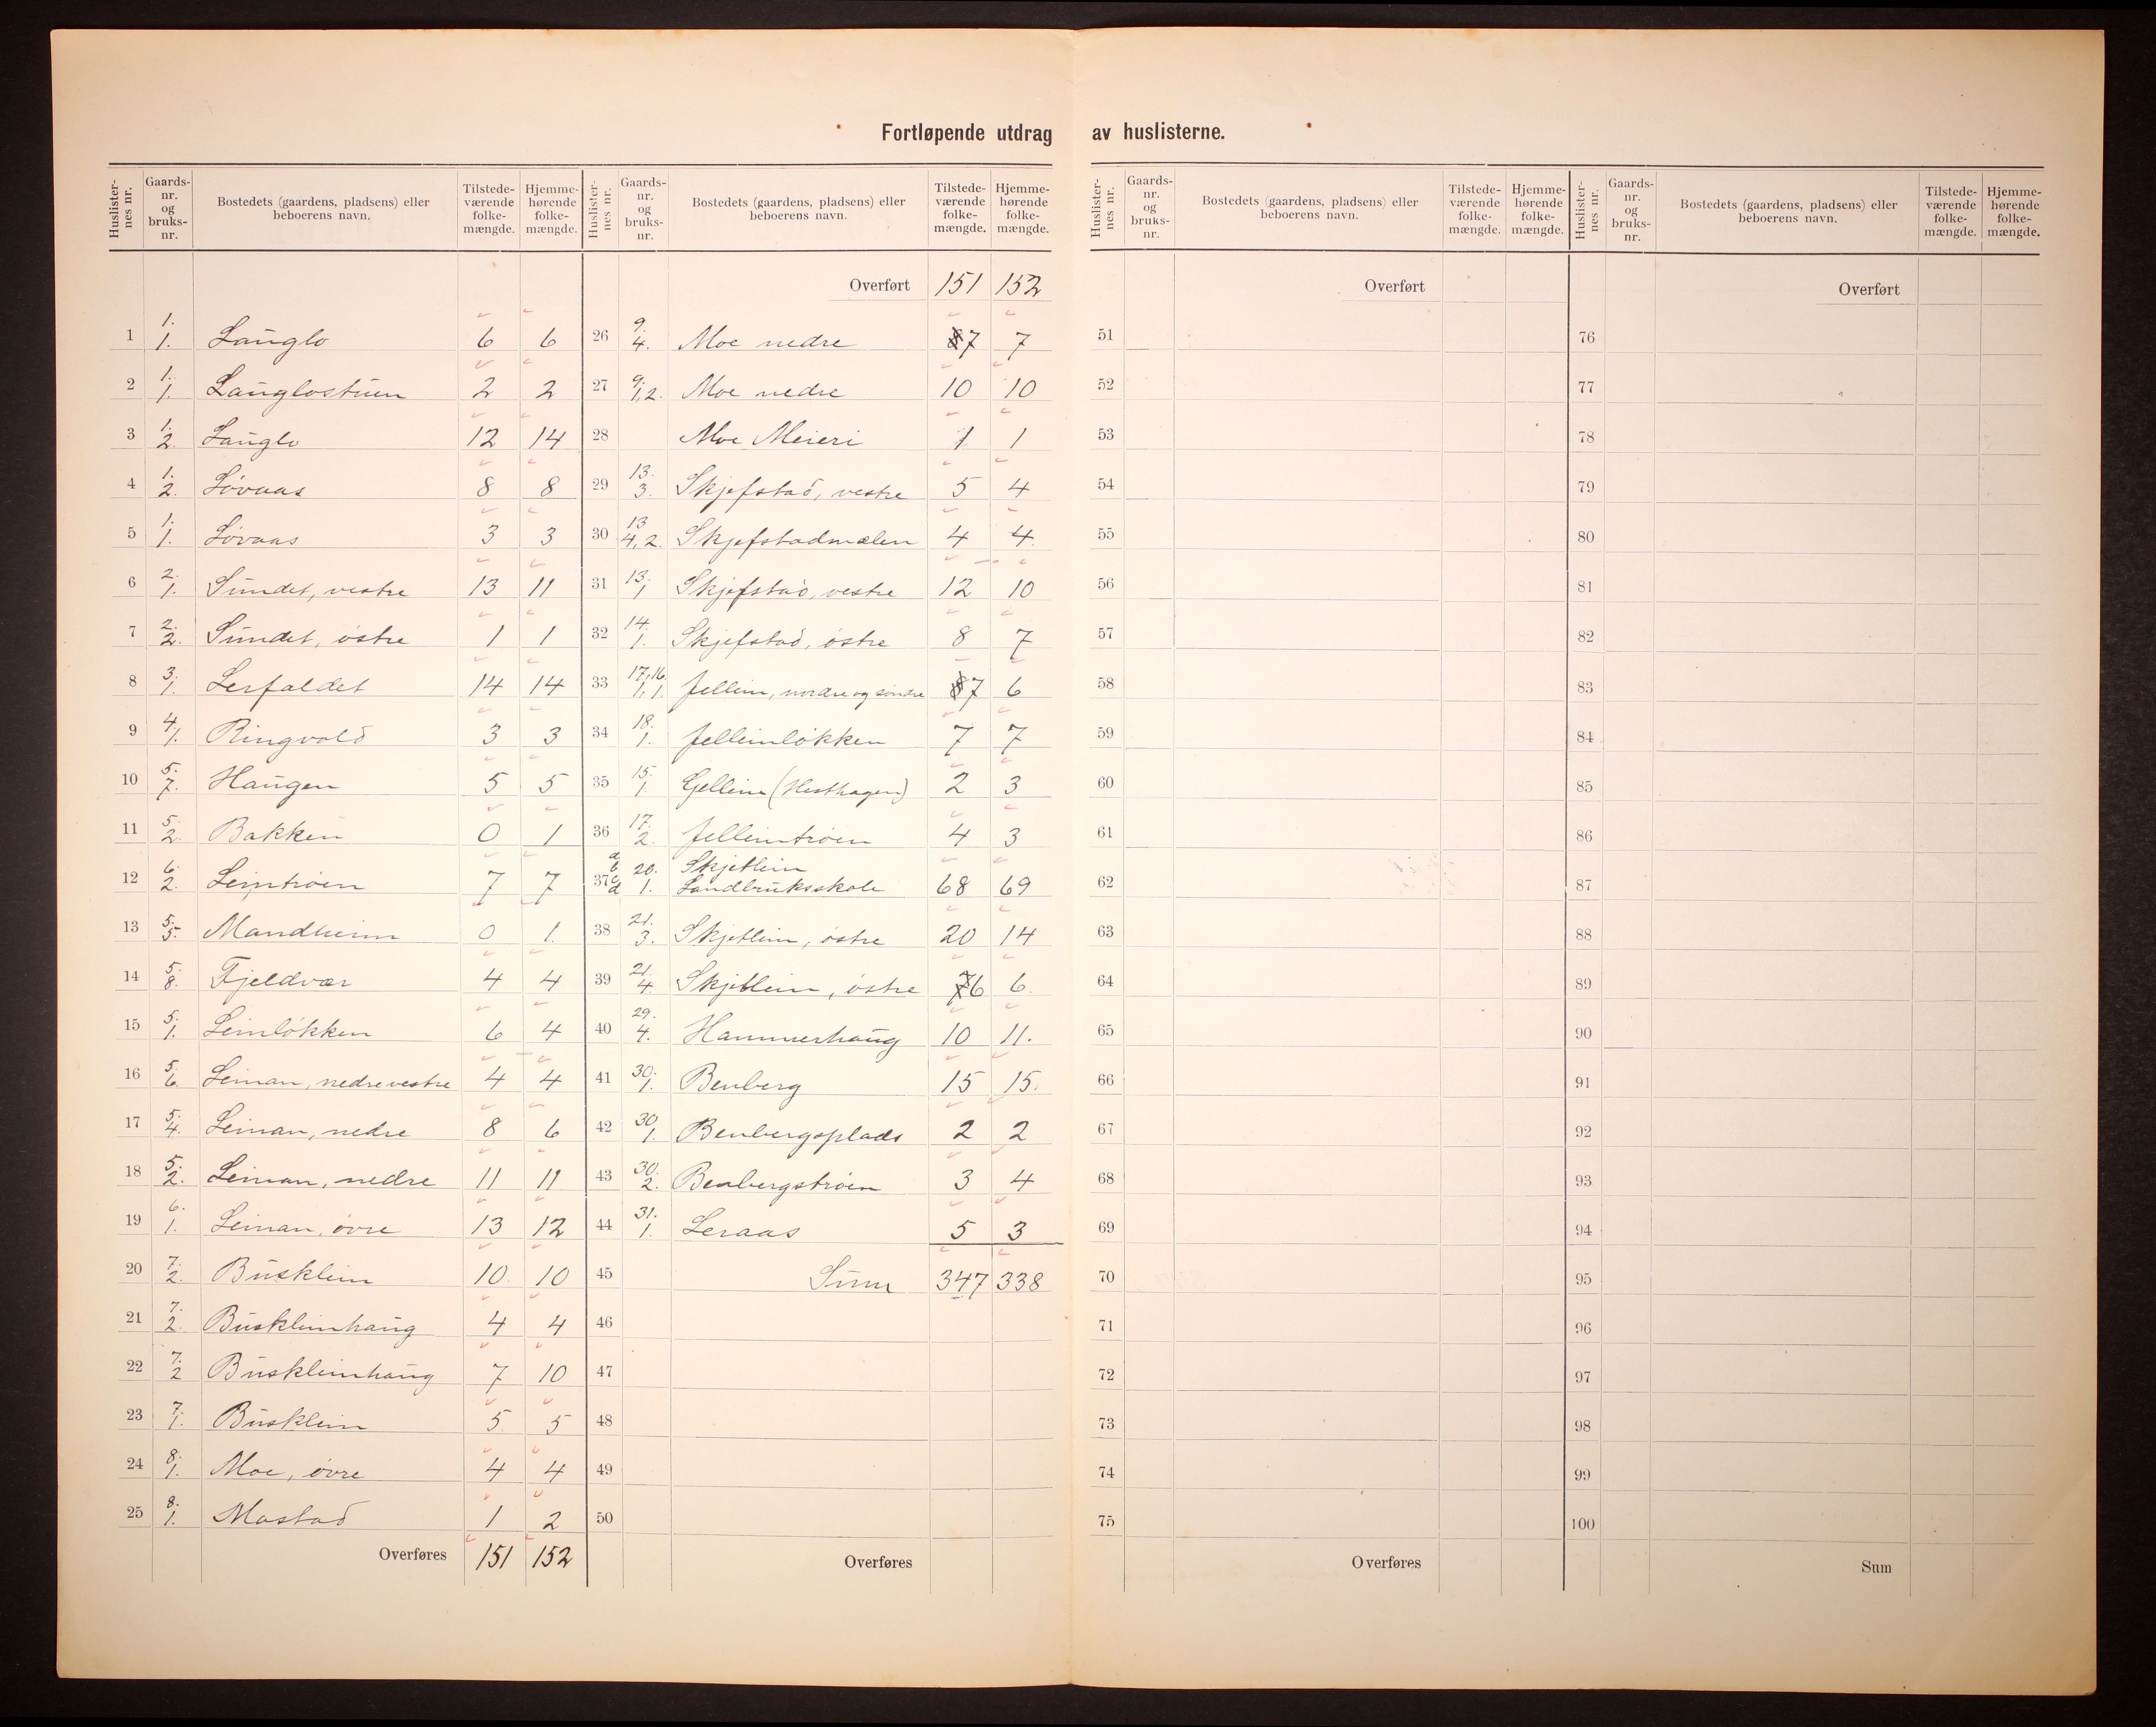 Fortløpende utdrag av huslisterne.
Huslisternes nr. | Gaards-nr. og bruks-nr. | Bostedets (gaardens, pladsens) eller beboerens navn. | Tilstede-værende folke-mængde. | Hjemme-hørende folke-mængde.
1 | 1. 1. | Langlo | 6 | 6
2 | 1. 1. | Langlostuen | 2 | 2
3 | 1. 2. | Langlo | 12 | 14
4 | 1. 2. | Løvaas | 8 | 8
5 | 1. 1. | Løvaas | 3 | 3
6 | 2. 1. | Sundet, vestre | 13 | 11
7 | 2. 2. | Sundet, østre | 1 | 1
8 | 3. 1. | Lerfaldet | 14 | 14
9 | 4. 1. | Ringvold | 3 | 3
10 | 5. 7. | Haugen | 5 | 5
11 | 5. 2. | Bakken | 0 | 1
12 | 6. 2. | Leintrøen | 7 | 7
13 | 5. 5. | Mandheim | 0 | 1.
14 | 5. 8. | Fjeldvær | 4 | 4
15 | 5. 1. | Leinløkken | 6 | 4
16 | 5. 6. | Leinan, nedre vestre | 4 | 4
17 | 5. 4. | Leinan, nedre | 8 | 6
18 | 5. 2. | Leinan, nedre | 11 | 11
19 | 6. 1. | Leinan, øvre | 13 | 12
20 | 7. 2. | Busklein | 10 | 10
21 | 7. 2. | Buskleinhaug | 4 | 4
22 | 7. 2 | Buskleinhaug | 7 | 10
23 | 7. 1. | Busklein | 5 | 5
24 | 8. 1. | Moe, øvre | 4 | 4
25 | 8. 1. | Mostad | 1 | 2
Overføres | 151 | 152
Huslisternes nr. | Gaards-nr. og bruks-nr. | Bostedets (gaardens, pladsens) eller beboerens navn. | Tilstede-værende folke-mængde. | Hjemme-hørende folke-mængde.
Overført | 151 | 152
26 | 9. 4. | Moe nedre | 8 7 | 7
27 | 9. 1,2. | Moe nedre | 10 | 10
28 | Moe Meieri | 1 | 1
29 | 13. 3. | Skjefstad, vestre | 5 | 4
30 | 13 4,2. | Skjefstadmælen | 4 | 4.
31 | 13. 1 | Skjefstad, vestre | 12 | 10
32 | 14. 1. | Skjefstad, østre | 8 | 7
33 | 17,16. 1,1. | Jellein, nordre og søndre | 8 7 | 6
34 | 18. 1. | Jelleinløkken | 7 | 7
35 | 15. 1. | Gjellein (Hesthagen) | 2 | 3
36 | 17. 2. | Jelleintrøen | 4 | 3
37 a b c d | 20. 1. | Skjetlein Landbruksskole | 68 | 69
38 | 21. 3. | Skjetlein, østre | 20 | 14
39 | 21. 4. | Skjetlein, østre | 7 6 | 6.
40 | 29. 4. | Hammerhaug | 10 | 11.
41 | 30. 1. | Benberg | 15 | 15.
42 | 30 1. | Benbergsplads | 2 | 2
43 | 30. 2. | Benbergstrøen | 3 | 4
44 | 31. 1. | Leraas | 5 | 3
45 | Sum | 347 | 338
46
47
48
49
50
Overføres
Huslisternes nr. | Gaards-nr. og bruks-nr. | Bostedets (gaardens, pladsens) eller beboerens navn. | Tilstede-værende folke-mængde. | Hjemme-hørende folke-mængde.
Overført
51
52
53
54
55
56
57
58
59
60
61
62
63
64
65
66
67
68
69
70
71
72
73
74
75
Overføres
Huslisternes nr. | Gaards-nr. og bruks-nr. | Bostedets (gaardens, pladsens) eller beboerens navn. | Tilstede-værende folke-mængde. | Hjemme-hørende folke-mængde.
Overført
76
77
78
79
80
81
82
83
84
85
86
87
88
89
90
91
92
93
94
95
96
97
98
99
100
Sum